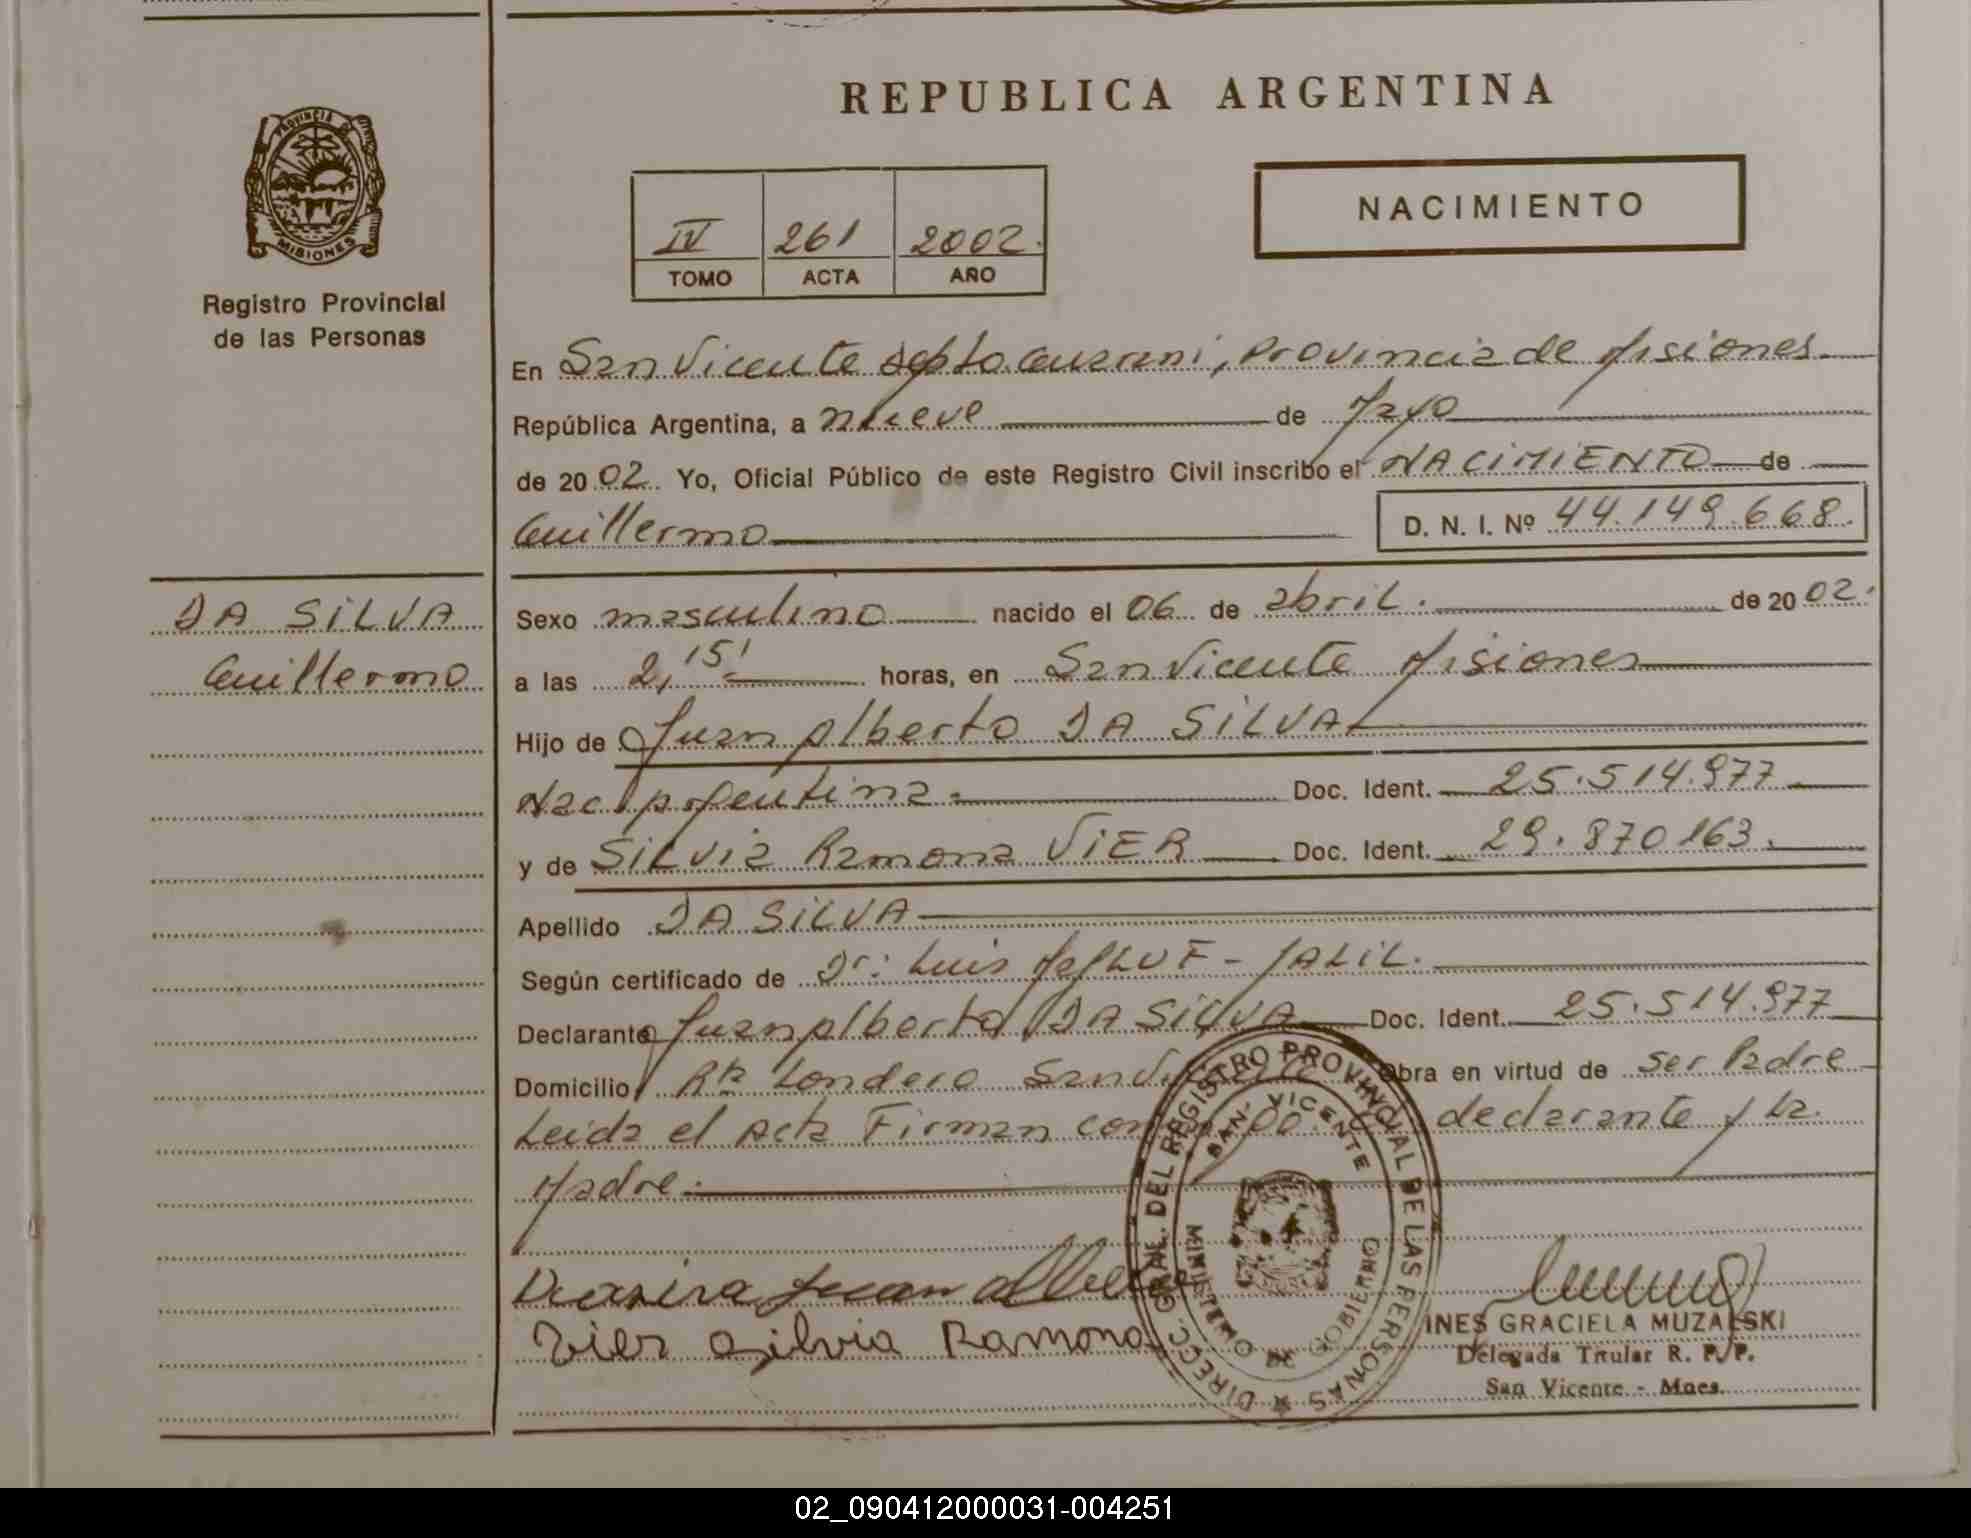 REPUBLICA ARGENTINA
PROVINCIA DE
MISIONES
Registro Provincial
de las Personas
IV 261 2002.
TOMO ACTA AÑO
NACIMIENTO
En San Vicente Dpto. Guarani, Provincia de Misiones.
República Argentina, a nueve de Mayo
de 2002. Yo, Oficial Público de este Registro Civil inscribo el NACIMIENTO de
Guillermo D. N. I. Nº 44.149.668.
DA SILVA
Guillermo
Sexo masculino nacido el 06 de abril. de 2002.
a las 2,15' horas, en San Vicente Misiones
Hijo de Juan Alberto DA SILVA
Nac. Argentina. Doc. Ident. 25.514.977
y de Silvia Ramona VIER Doc. Ident. 29.870163.
Apellido DA SILVA
Según certificado de Dr. Luis JALIL.
Declarante Juan Alberto DA SILVA Doc. Ident. 25.514.977
Domicilio Rta Londero San Vicente Obra en virtud de ser Padre
Leida el Acta Firman declarante y La.
Madre.
Juan
Vier Silvia Ramona
DIRECC. GRAL. DEL REGISTRO PROVINCIAL DE LAS PERSONAS
SAN VICENTE
MINISTERIO DE GOBIERNO
INES GRACIELA MUZALSKI
Delegada Titular R. P. P.
San Vicente - Mnes.
02_090412000031-004251